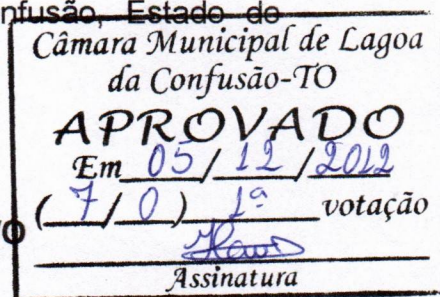 nfusão, Estado do
Câmara Municipal de Lagoa
da Confusão-TO
APROVADO
Em 05/12/2012
(7/0) 1ª votação
Assinatura